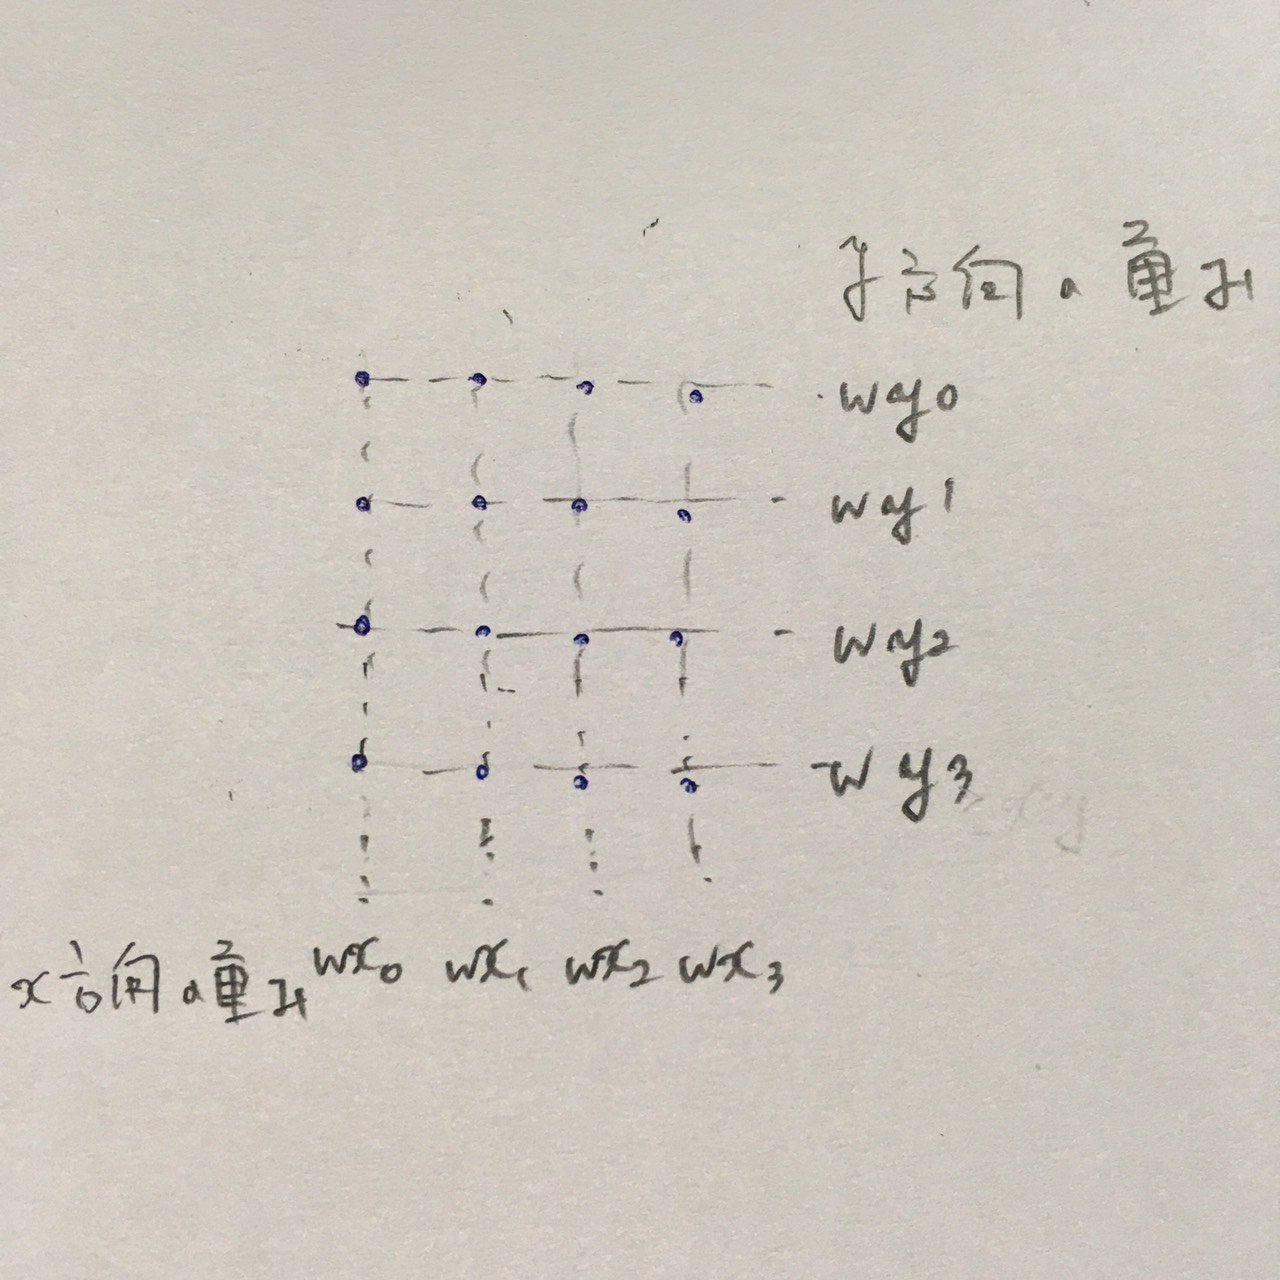 y方向の重み
wy0
wy1
wy2
wy3
x方向の重み wx0 wx1 wx2 wx3